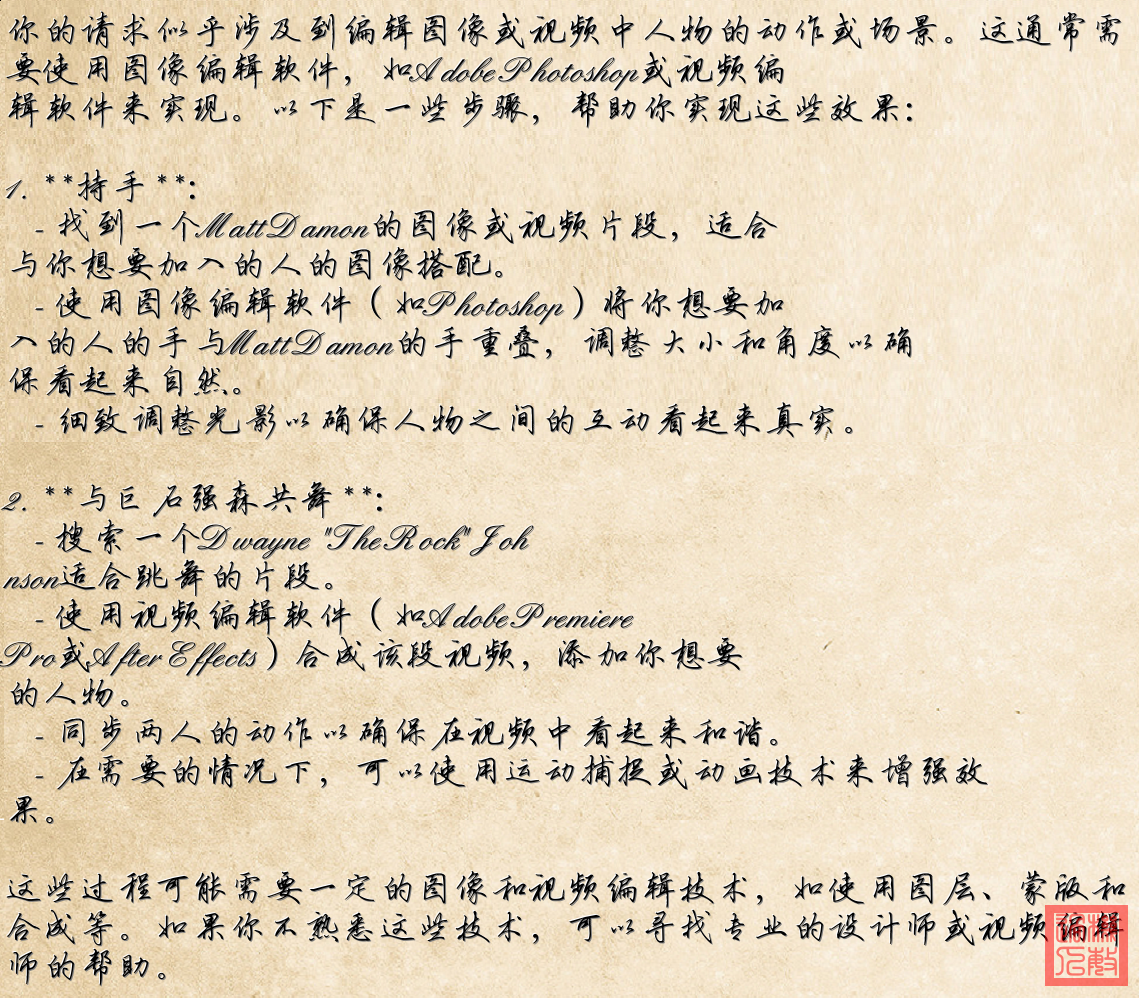 你的请求似乎涉及到编辑图像或视频中人物的动作或场景。这通常需
要使用图像编辑软件，如AdobePhotoshop或视频编
辑软件来实现。以下是一些步骤，帮助你实现这些效果：
1. **持手**：
- 找到一个MattDamon的图像或视频片段，适合
与你想要加入的人的图像搭配。
- 使用图像编辑软件（如Photoshop）将你想要加
入的人的手与MattDamon的手重叠，调整大小和角度以确
保看起来自然。
- 细致调整光影以确保人物之间的互动看起来真实。
2. **与巨石强森共舞**：
- 搜索一个Dwayne "TheRock"Joh
nson适合跳舞的片段。
- 使用视频编辑软件（如AdobePremiere
Pro或AfterEffects）合成该段视频，添加你想要
的人物。
- 同步两人的动作以确保在视频中看起来和谐。
- 在需要的情况下，可以使用运动捕捉或动画技术来增强效
果。
这些过程可能需要一定的图像和视频编辑技术，如使用图层、蒙版和
合成等。如果你不熟悉这些技术，可以寻找专业的设计师或视频编辑
师的帮助。